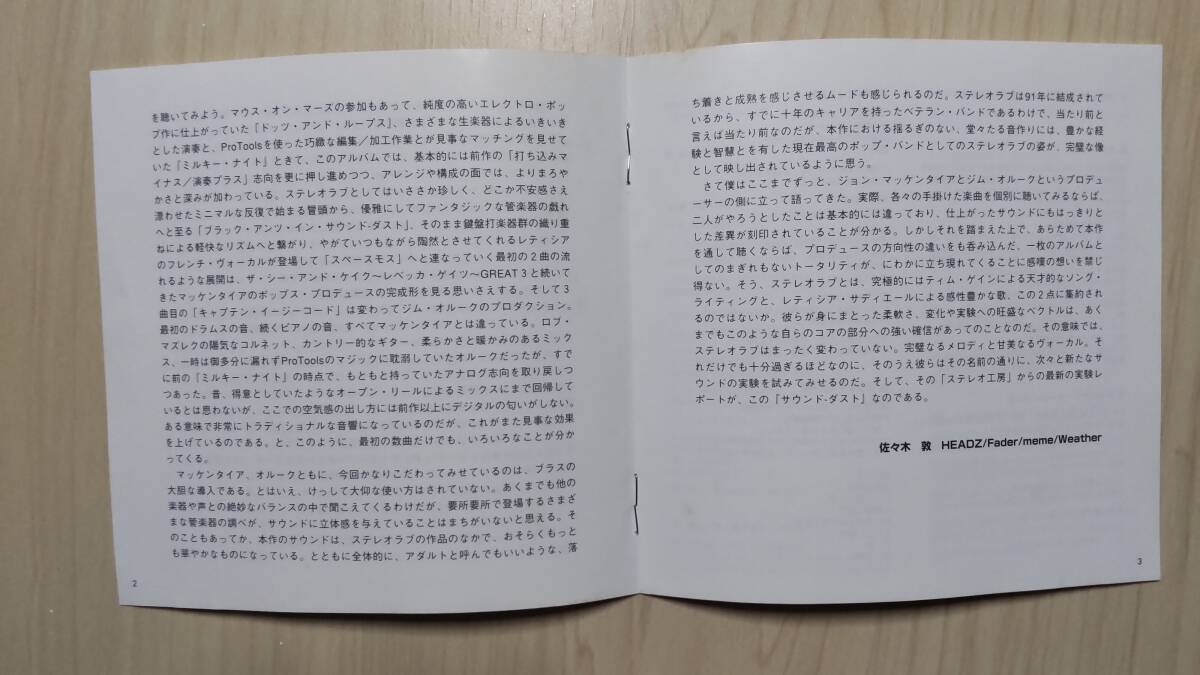 を聴いてみよう。マウス・オン・マーズの参加もあって、純度の高いエレクトロ・ポッ
プ作に仕上がっていた『ドッツ・アンド・ループス』、さまざまな生楽器によるいきいき
とした演奏と、ProToolsを使った巧緻な編集／加工作業とが見事なマッチングを見せて
いた『ミルキー・ナイト』ときて、このアルバムでは、基本的には前作の「打ち込みマ
イナス／演奏プラス」志向を更に押し進めつつ、アレンジや構成の面では、よりまろや
かさと深みが加わっている。ステレオラブとしてはいささか珍しく、どこか不安感さえ
漂わせたミニマルな反復で始まる冒頭から、優雅にしてファンタジックな管楽器の戯れ
へと至る「ブラック・アンツ・イン・サウンド-ダスト」、そのまま鍵盤打楽器群の織り重
ねによる軽快なリズムへと繋がり、やがていつもながら陶然とさせてくれるレティシア
のフレンチ・ヴォーカルが登場して「スペースモス」へと連なっていく最初の２曲の流
れるような展開は、ザ・シー・アンド・ケイク〜レベッカ・ゲイツ〜GREAT３と続いて
きたマッケンタイアのポップス・プロデュースの完成形を見る思いさえする。そして３
曲目の「キャプテン・イージーコード」は変わってジム・オルークのプロダクション。
最初のドラムスの音、続くピアノの音、すべてマッケンタイアとは違っている。ロブ・
マズレクの陽気なコルネット、カントリー的なギター、柔らかさと暖かみのあるミック
ス、一時は御多分に漏れずProToolsのマジックに耽溺していたオルークだったが、すで
に前の『ミルキー・ナイト』の時点で、もともと持っていたアナログ志向を取り戻しつ
つあった。音、得意としていたようなオープン・リールによるミックスにまで回帰して
いるとは思わないが、ここでの空気感の出し方には前作以上にデジタルの匂いがしない。
ある意味で非常にトラディショナルな音響になっているのだが、これがまた見事な効果
を上げているのである。と、このように、最初の数曲だけでも、いろいろなことが分か
ってくる。
マッケンタイア、オルークともに、今回かなりこだわってみせているのは、ブラスの
大胆な導入である。とはいえ、けっして大仰な使い方はされていない。あくまでも他の
楽器や声との絶妙なバランスの中で聞こえてくるわけだが、要所要所で登場するさまざ
まな管楽器の調べが、サウンドに立体感を与えていることはまちがいないと思える。そ
のこともあってか、本作のサウンドは、ステレオラブの作品のなかで、おそらくもっと
も華やかなものになっている。とともに全体的に、アダルトと呼んでもいいような、落
2
ち着きと成熟を感じさせるムードも感じられるのだ。ステレオラブは91年に結成されて
いるから、すでに十年のキャリアを持ったベテラン・バンドであるわけで、当たり前と
言えば当たり前なのだが、本作における揺るぎのない、堂々たる音作りには、豊かな経
験と智慧とを有した現在最高のポップ・バンドとしてのステレオラブの姿が、完璧な像
として映し出されているように思う。
さて僕はここまでずっと、ジョン・マッケンタイアとジム・オルークというプロデュ
ーサーの側に立って語ってきた。実際、各々の手掛けた楽曲を個別に聴いてみるならば、
二人がやろうとしたことは基本的には違っており、仕上がったサウンドにもはっきりと
した差異が刻印されていることが分かる。しかしそれを踏まえた上で、あらためて本作
を通して聴くならば、プロデュースの方向性の違いをも呑み込んだ、一枚のアルバムと
してのまぎれもないトータリティが、にわかに立ち現れてくることに感嘆の想いを禁じ
得ない。そう、ステレオラブとは、究極的にはティム・ゲインによる天才的なソング・
ライティングと、レティシア・サディエールによる感性豊かな歌、この２点に集約され
るのではないか。彼らが身にまとった柔軟さ、変化や実験への旺盛なベクトルは、あく
までもこのような自らのコアの部分への強い確信があってのことなのだ。その意味では、
ステレオラブはまったく変わっていない。完璧なるメロディと甘美なるヴォーカル。そ
れだけでも十分過ぎるほどなのに、そのうえ彼らはその名前の通りに、次々と新たなサ
ウンドの実験を試みてみせるのだ。そして、その「ステレオ工房」からの最新の実験レ
ポートが、この『サウンド-ダスト』なのである。
佐々木 敦 HEADZ/Fader/meme/Weather
3